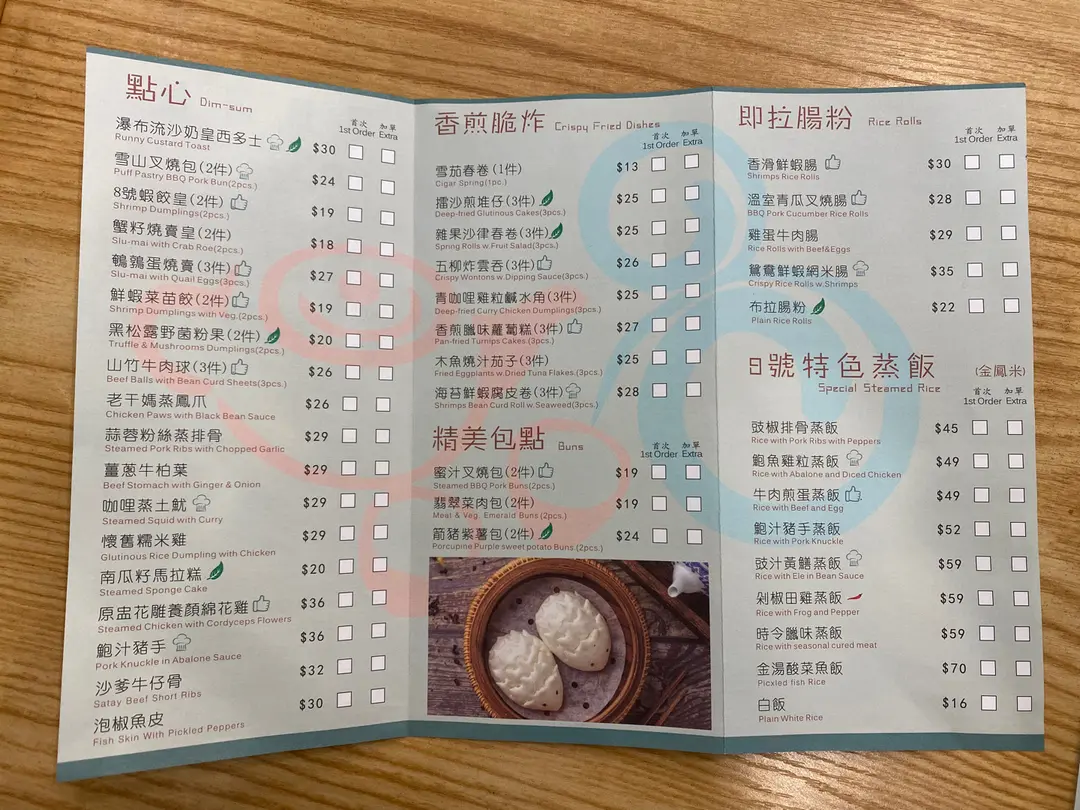 點心 Dim-sum
首次 加單
1st Order Extra
瀑布流沙奶皇西多士 $30
Runny Custard Toast
雪山叉燒包(2件) $24
Puff Pastry BBQ Pork Bun(2pcs.)
8號蝦餃皇(2件) $19
Shrimp Dumplings(2pcs.)
蟹籽燒賣皇(2件) $18
Slu-mai with Crab Roe(2pcs.)
鵪鶉蛋燒賣(3件) $27
Slu-mai with Quail Eggs(3pcs.)
鮮蝦菜苗餃(2件) $19
Shrimp Dumplings with Veg.(2pcs.)
黑松露野菌粉果(2件) $20
Truffle & Mushrooms Dumplings(2pcs.)
山竹牛肉球(3件) $26
Beef Balls with Bean Curd Sheets(3pcs.)
老干媽蒸鳳爪 $26
Chicken Paws with Black Bean Sauce
蒜蓉粉絲蒸排骨 $29
Steamed Pork Ribs with Chopped Garlic
薑蔥牛柏葉 $29
Beef Stomach with Ginger & Onion
咖哩蒸土魷 $29
Steamed Squid with Curry
懷舊糯米雞 $29
Glutinous Rice Dumpling with Chicken
南瓜籽馬拉糕 $20
Steamed Sponge Cake
原盅花雕養顏綿花雞 $36
Steamed Chicken with Cordyceps Flowers
鮑汁豬手 $36
Pork Knuckle in Abalone Sauce
沙爹牛仔骨 $32
Satay Beef Short Ribs
泡椒魚皮 $30
Fish Skin With Pickled Peppers
香煎脆炸 Crispy Fried Dishes
首次 加單
1st Order Extra
雪茄春卷(1件) $13
Cigar Spring(1pc.)
擂沙煎堆仔(3件) $25
Deep-fried Glutinous Cakes(3pcs.)
雜果沙律春卷(3件) $25
Spring Rolls w.Fruit Salad(3pcs.)
五柳炸雲吞(3件) $26
Crispy Wontons w.Dipping Sauce(3pcs.)
青咖哩雞粒鹹水角(3件) $25
Deep-fried Curry Chicken Dumplings(3pcs.)
香煎臘味蘿蔔糕(3件) $27
Pan-fried Turnips Cakes (3pcs.)
木魚燒汁茄子(3件) $25
Fried Eggplants w.Dried Tuna Flakes.(3pcs.)
海苔鮮蝦腐皮卷(3件) $28
Shrimps Bean Curd Roll w.Seaweed(3pcs.)
精美包點 Buns
首次 加單
1st Order Extra
蜜汁叉燒包(2件) $19
Steamed BBQ Pork Buns(2pcs.)
翡翠菜肉包(2件) $19
Meat & Veg. Emerald Buns.(2pcs.)
箭豬紫薯包(2件) $24
Porcupine Purple sweet potato Buns.(2pcs.)
即拉腸粉 Rice Rolls
首次 加單
1st Order Extra
香滑鮮蝦腸 $30
Shrimps Rice Rolls
溫室青瓜叉燒腸 $28
BBQ Pork Cucumber Rice Rolls
雞蛋牛肉腸 $29
Rice Rolls with Beef&Eggs
鴛鴦鮮蝦網米腸 $35
Crispy Rice Rolls w.Shrimps
布拉腸粉 $22
Plain Rice Rolls
8號特色蒸飯 (金鳳米)
Special Steamed Rice
首次 加單
1st Order Extra
豉椒排骨蒸飯 $45
Rice with Pork Ribs with Peppers
鮑魚雞粒蒸飯 $49
Rice with Abalone and Diced Chicken
牛肉煎蛋蒸飯 $49
Rice with Beef and Egg
鮑汁豬手蒸飯 $52
Rice with Pork Knuckle
豉汁黃鱔蒸飯 $59
Rice with Ele in Bean Sauce
剁椒田雞蒸飯 $59
Rice with Frog and Pepper
時令臘味蒸飯 $59
Rice with seasonal cured meat
金湯酸菜魚飯 $70
Picxled fish Rice
白飯 $16
Plain White Rice